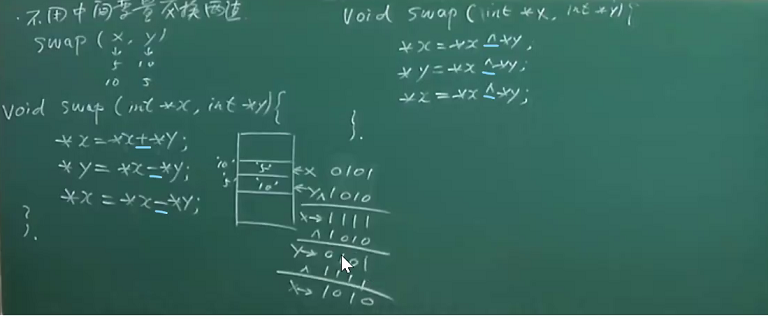 不用中间变量交换两值
swap (x, y)
↓ ↓
5 10
10 5
void swap (int *x, int *y){
*x=*x+*y;
*y=*x-*y;
*x=*x-*y;
}.
'10' '5' ←x 0101
5 '10' ←y^1010
x→1111
^1010
y→0101
^1111
x→1010
void swap (int *x, int *y){
*x=*x^*y;
*y=*x^*y;
*x=*x^*y;
}.